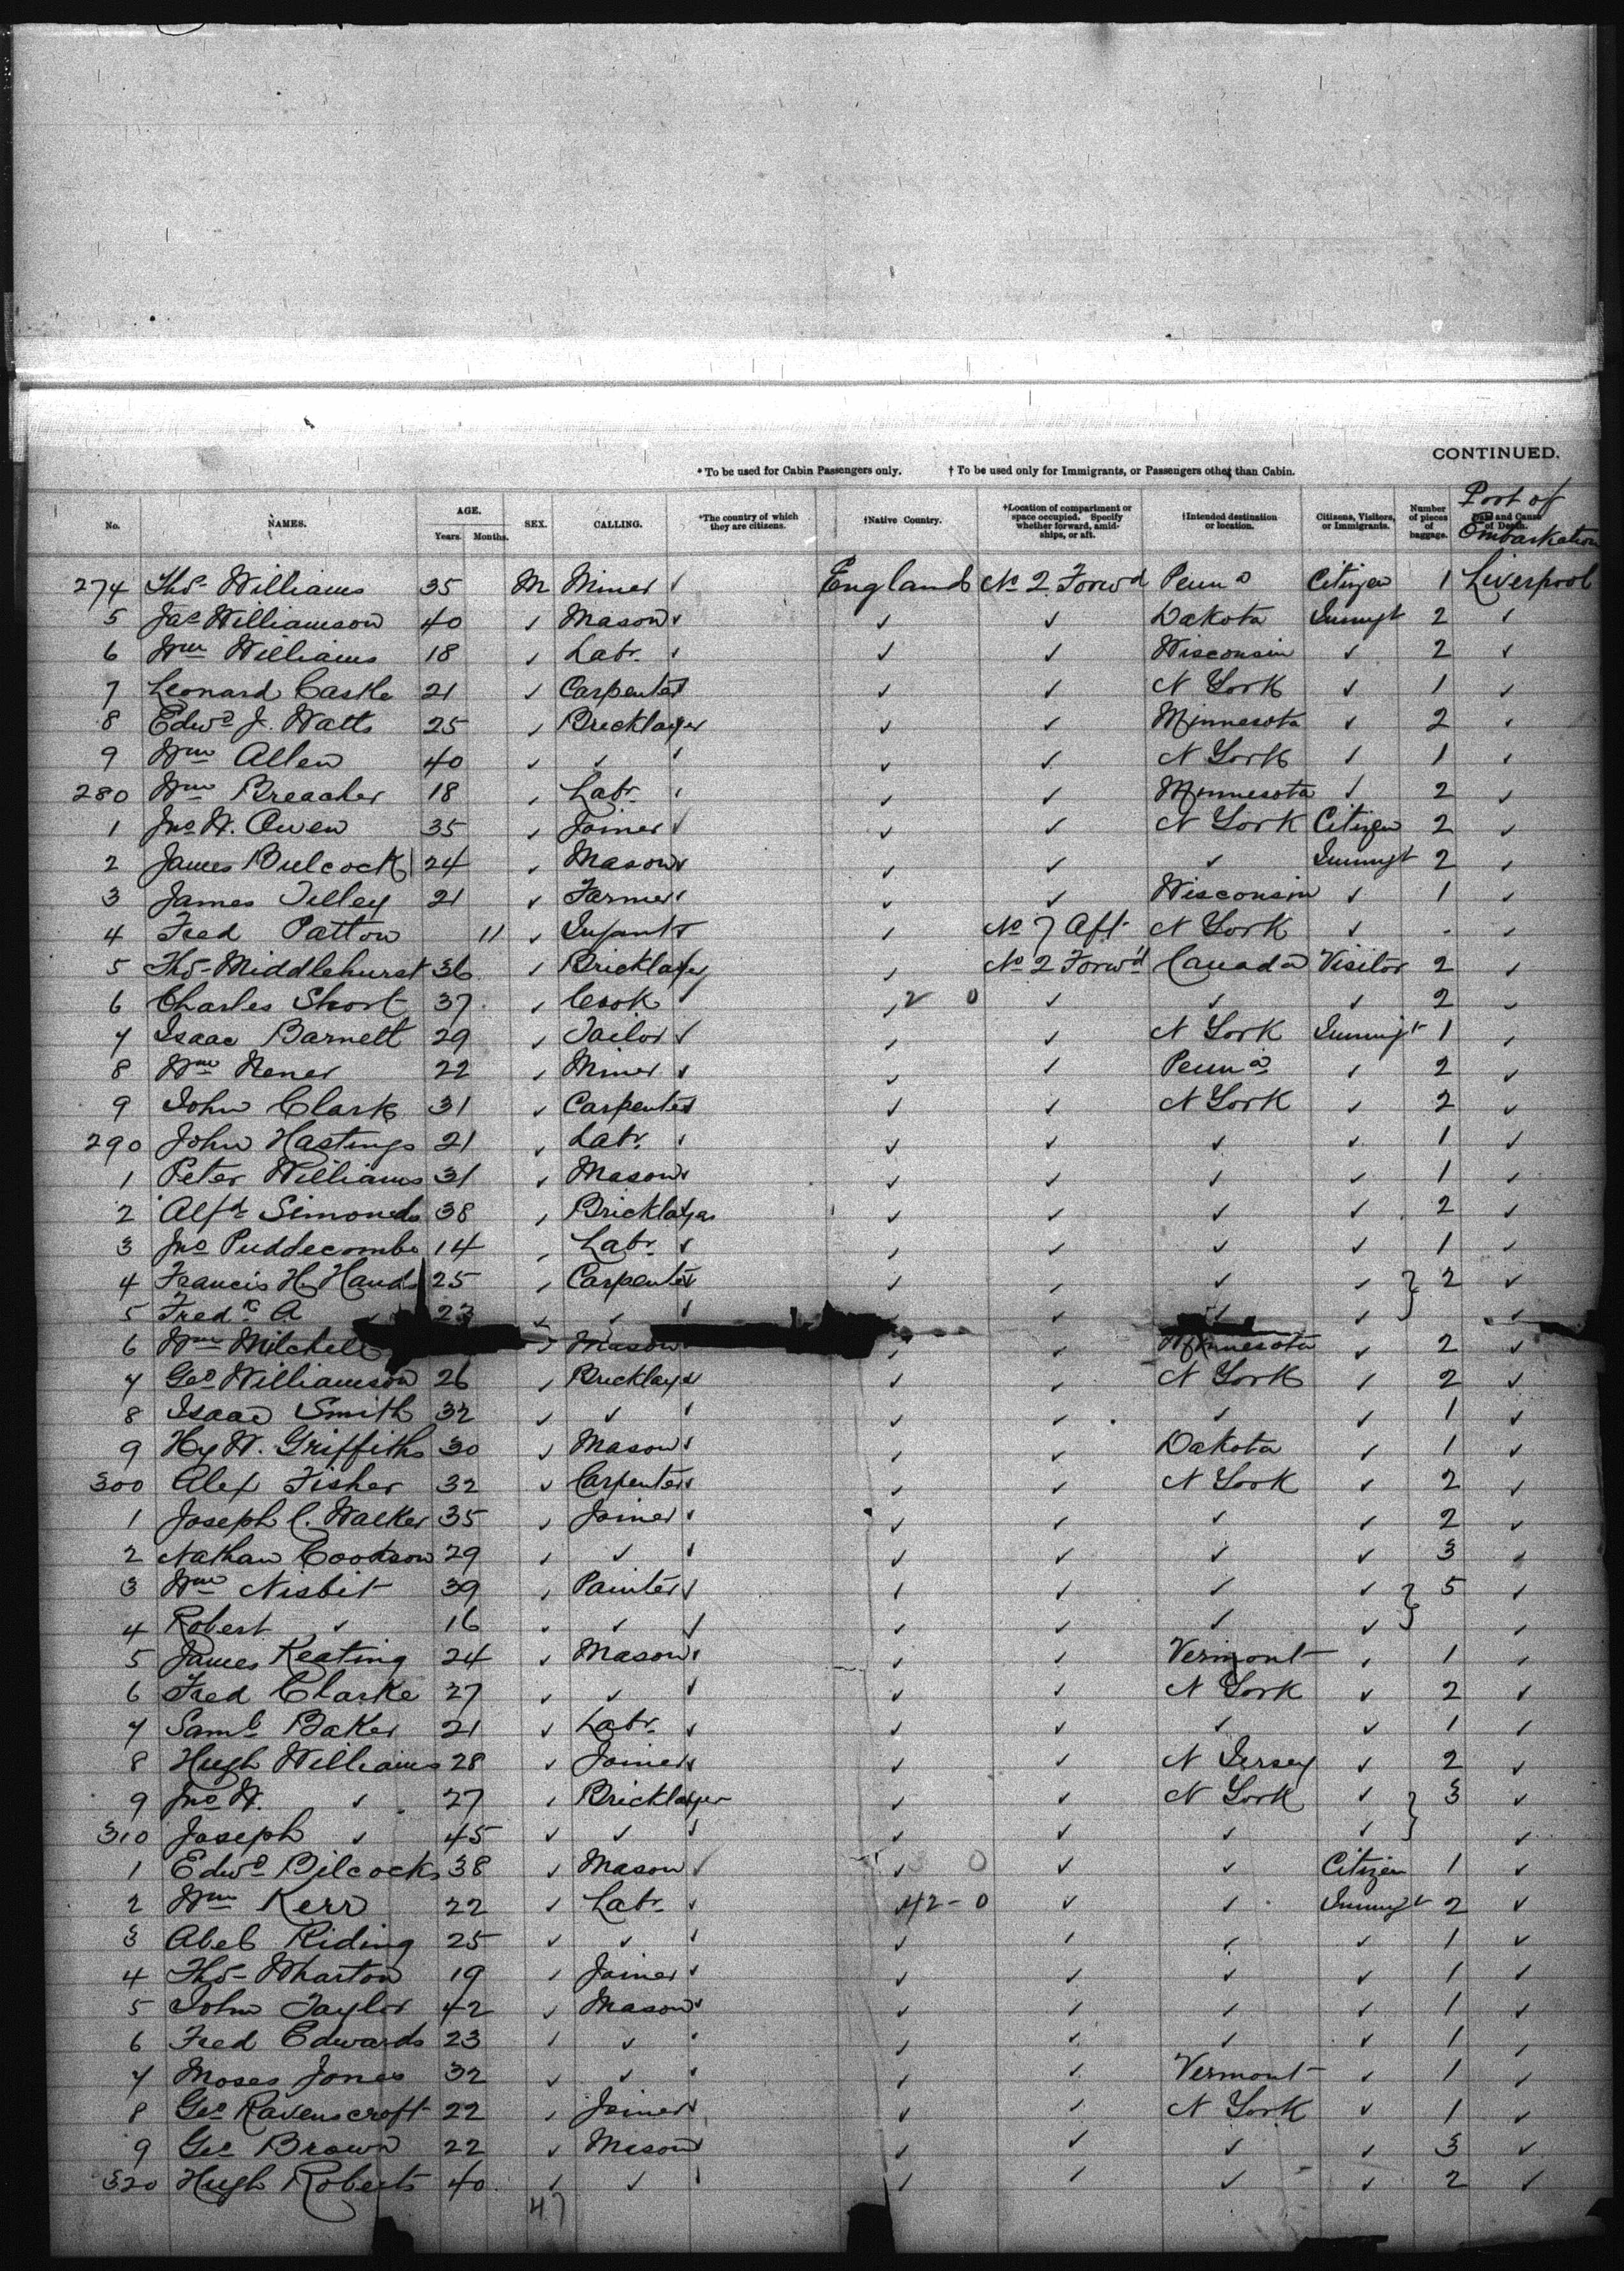 CONTINUED.
*To be used for Cabin Passengers only. † To be used only for Immigrants, or Passengers other than Cabin.
No. NAMES. AGE. Years. Months. SEX. CALLING. *The country of which they are citizens. †Native Country. †Location of compartment or space occupied. Specify whether forward, amidships, or aft. †Intended destination or location. Citizens, Visitors, or Immigrants. Number of pieces of baggage. Date and Cause of Death. Port of Embarkation
274 Thos Williams 35 M Miner ✓ England No 2 Forwd Penna Citizen 1 Liverpool
5 Jas Williamson 40 ✓ Mason ✓ ✓ ✓ Dakota Immgt 2 ✓
6 Wm Williams 18 ✓ Labr. ✓ ✓ ✓ Wisconsin ✓ 2 ✓
7 Leonard Castle 21 ✓ Carpenter ✓ ✓ N York ✓ 1 ✓
8 Edwd J. Watts 25 ✓ Bricklayer ✓ ✓ Minnesota ✓ 2 ✓
9 Wm Allen 40 ✓ ✓ ✓ ✓ ✓ N York ✓ 1 ✓
280 Wm Breacher 18 ✓ Labr. ✓ ✓ ✓ Minnesota ✓ 2 ✓
1 Jno W. Owen 35 ✓ Joiner ✓ ✓ ✓ N York Citizen 2 ✓
2 James Bulcock 24 ✓ Mason ✓ ✓ ✓ ✓ Immgt 2 ✓
3 James Tilley 21 ✓ Farmer ✓ ✓ ✓ Wisconsin ✓ 1 ✓
4 Fred Patton 11 ✓ Infant ✓ ✓ No 7 Aft N York ✓ - ✓
5 Thos Middlehurst 36 ✓ Bricklayer ✓ No 2 Forwd Canada Visitor 2 ✓
6 Charles Short 37 ✓ Cook ✓ 2 0 ✓ ✓ ✓ 2 ✓
7 Isaac Barnett 29 ✓ Tailor ✓ ✓ ✓ N York Immigt 1 ✓
8 Wm Nener 22 ✓ Miner ✓ ✓ ✓ Penna ✓ 2 ✓
9 John Clark 31 ✓ Carpenter ✓ ✓ N York ✓ 2 ✓
290 John Hastings 21 ✓ Labr. ✓ ✓ ✓ ✓ ✓ 1 ✓
1 Peter Williams 31 ✓ Mason ✓ ✓ ✓ ✓ ✓ 1 ✓
2 Alfd Simonds 38 ✓ Bricklayer ✓ ✓ ✓ ✓ 2 ✓
3 Jno Puddecombe 14 ✓ Labr. ✓ ✓ ✓ ✓ ✓ 1 ✓
4 Francis H. Hands 25 ✓ Carpenter ✓ ✓ ✓ ✓ } 2 ✓
5 Fredk A ✓ 23 ✓ ✓ ✓ ✓ ✓ ✓ ✓ ✓
6 Wm Mitchell ✓ Mason ✓ ✓ Minnesota ✓ 2 ✓
7 Geo Williamson 26 ✓ Bricklayer ✓ ✓ N York ✓ 2 ✓
8 Isaac Smith 32 ✓ ✓ ✓ ✓ ✓ ✓ ✓ 1 ✓
9 Hy W. Griffiths 30 ✓ Mason ✓ ✓ ✓ Dakota ✓ 1 ✓
300 Alex Fisher 32 ✓ Carpenter ✓ ✓ ✓ N York ✓ 2 ✓
1 Joseph C. Walker 35 ✓ Joiner ✓ ✓ ✓ ✓ ✓ 2 ✓
2 Nathan Cookson 29 ✓ ✓ ✓ ✓ ✓ ✓ ✓ 3 ✓
3 Wm Nisbit 39 ✓ Painter ✓ ✓ ✓ ✓ ✓ } 5 ✓
4 Robert ✓ 16 ✓ ✓ ✓ ✓ ✓ ✓ ✓ ✓
5 James Keating 24 ✓ Mason ✓ ✓ ✓ Vermont ✓ 1 ✓
6 Fred Clarke 27 ✓ ✓ ✓ ✓ ✓ N York ✓ 2 ✓
7 Saml Baker 21 ✓ Labr. ✓ ✓ ✓ ✓ ✓ 1 ✓
8 Hugh Williams 28 ✓ Joiner ✓ ✓ ✓ N Jersey ✓ 2 ✓
9 Jno W. ✓ 27 ✓ Bricklayer ✓ ✓ N York ✓ } 3 ✓
310 Joseph ✓ 45 ✓ ✓ ✓ ✓ ✓ ✓ ✓ ✓
1 Edwd Bilcocks 38 ✓ Mason ✓ ✓ 0 ✓ ✓ Citizen 1 ✓
2 Wm Kerr 22 ✓ Labr. ✓ 42-0 ✓ ✓ Immgt 2 ✓
3 Abel Riding 25 ✓ ✓ ✓ ✓ ✓ ✓ ✓ 1 ✓
4 Thos Wharton 19 ✓ Joiner ✓ ✓ ✓ ✓ ✓ 1 ✓
5 John Taylor 42 ✓ Mason ✓ ✓ ✓ ✓ ✓ 1 ✓
6 Fred Edwards 23 ✓ ✓ ✓ ✓ ✓ ✓ ✓ 1 ✓
7 Moses Jones 32 ✓ ✓ ✓ ✓ ✓ Vermont ✓ 1 ✓
8 Geo Ravenscroft 22 ✓ Joiner ✓ ✓ ✓ N York ✓ 1 ✓
9 Geo Brown 22 ✓ Mason ✓ ✓ ✓ ✓ ✓ 3 ✓
320 Hugh Roberts 40 ✓ ✓ ✓ ✓ ✓ ✓ ✓ 2 ✓
47